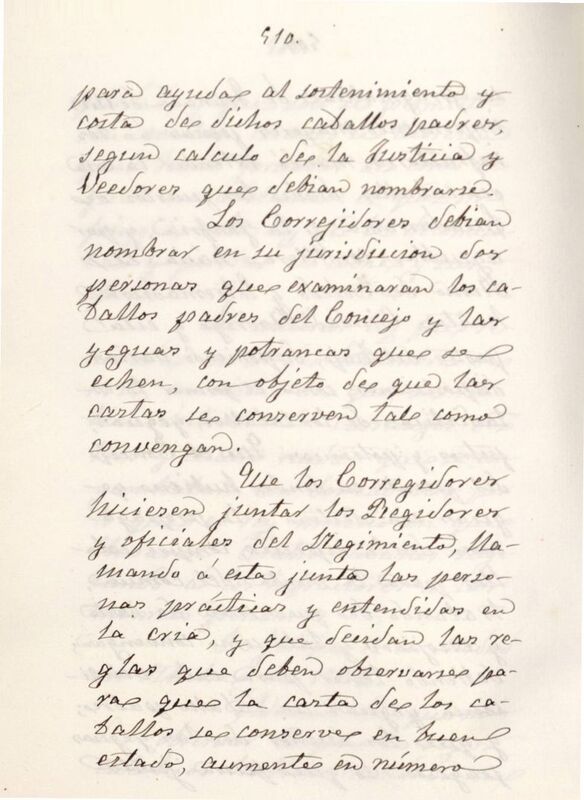 510.
para ayuda al sostenimiento y
costa de dichos caballos padres,
segun calculo de la Justicia y
Veedores que debian nombrarse.
Los Correjidores debian
nombrar en su jurisdicion dos
personas que examinaran los ca-
ballos padres del Concejo y las
yeguas y potrancas que se
echen, con objeto de que las
castas se conserven tal como
convengan.
Que los Corregidores
hiciesen juntar los Regidores
y oficiales del Regimiento, lla-
mando á esta junta las perso-
nas prácticas y entendidas en
la cria, y que decidan las re-
glas que deben observarse pa-
ra que la casta de los ca-
ballos se conserve en buen
estado, aumente en número